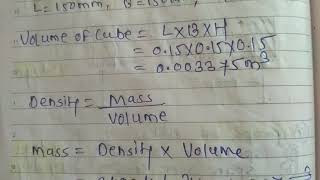 L=150mm, B=150m
Volume of Cube = L×B×H
= 0.15×0.15×0.15
= 0.003375m³
Density = Mass
Volume
Mass = Density × Volume